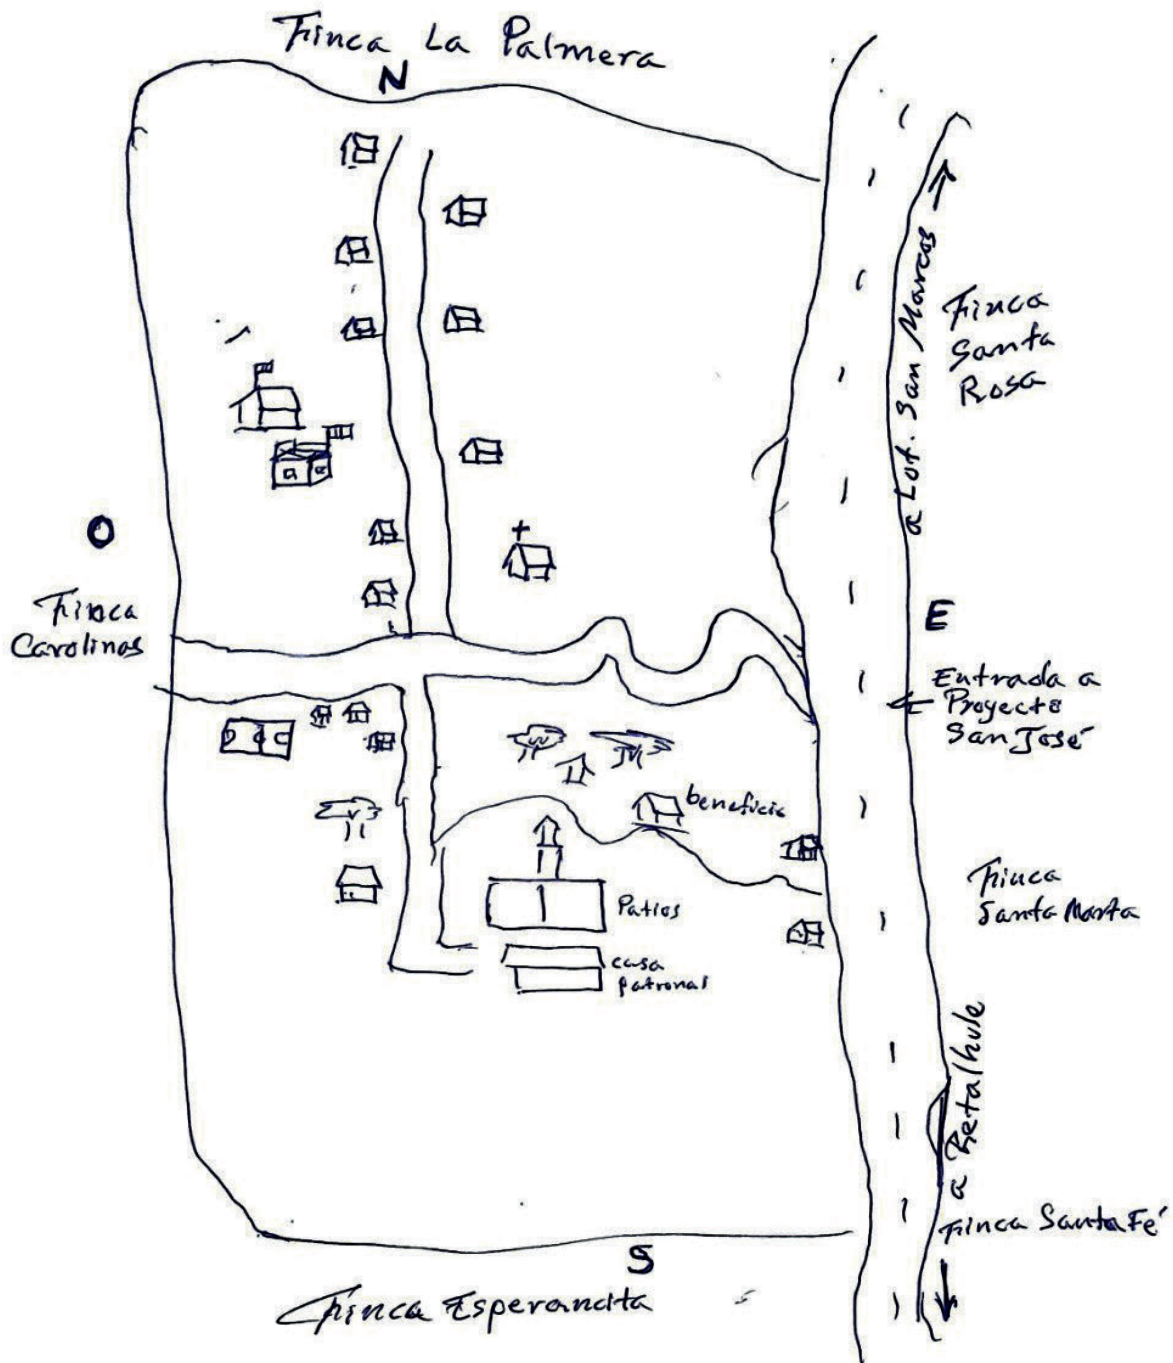 Finca La Palmera
N
a Lot. San Marcos
Finca
Santa
Rosa
O
Finca
Carolinas
E
Entrada a
Proyecto
San José
beneficio
Patios
casa
patronal
Finca
Santa Marta
a Retalhule
Finca Santa Fé
S
Finca Esperancita